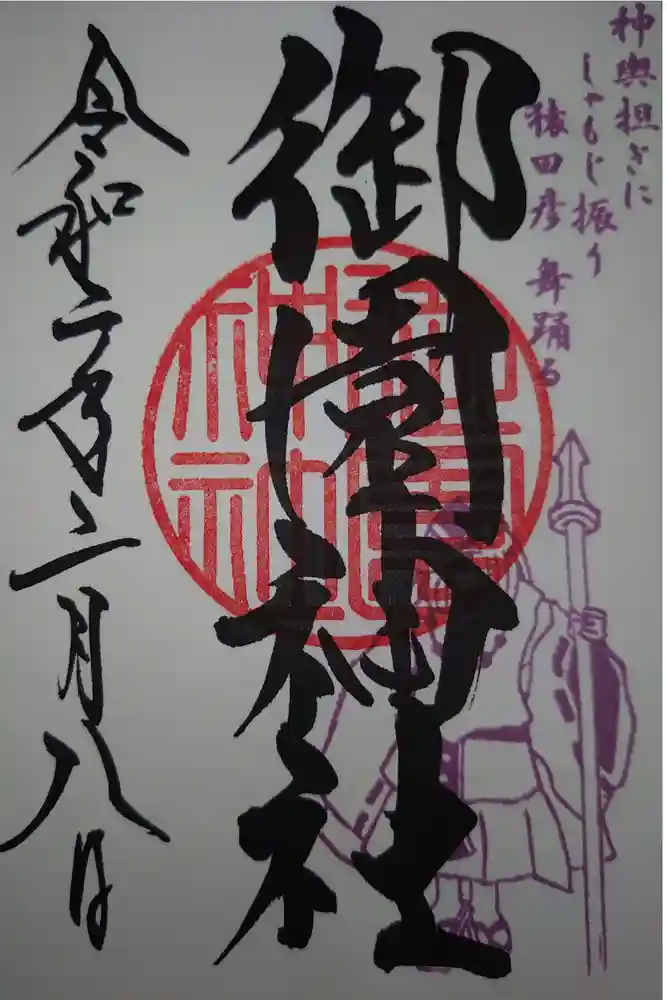 神輿担ぎに
しゃもじ振り
猿田彦 舞踊る
御園神社
令和二年二月八日